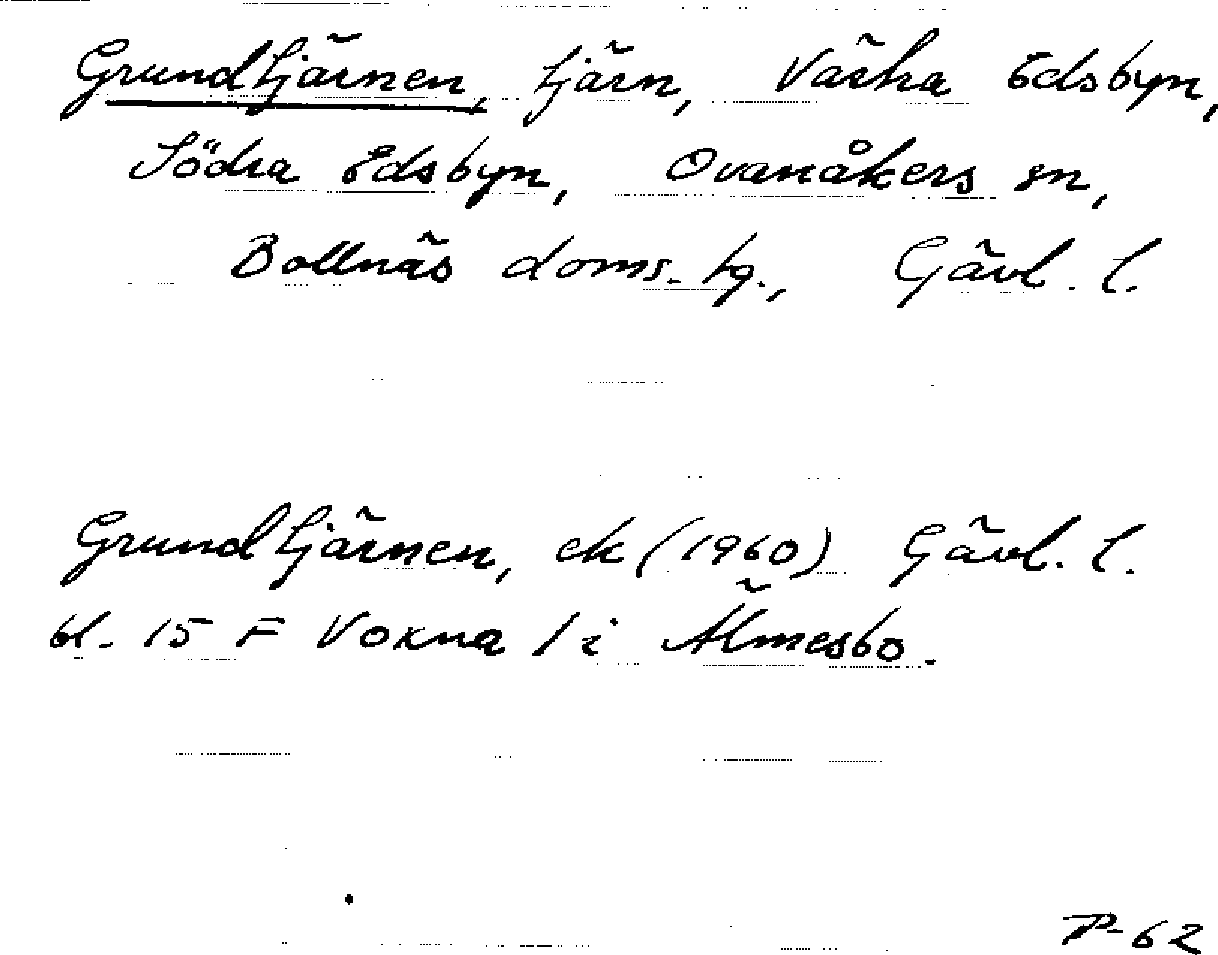 Grundtjärnen, tjärn, Västra Edsbyn,
Södra Edsbyn, Ovanåkers sn,
Bollnäs doms. tg., Gävl. l.
Grundtjärnen, ek (1960) Gävl. l.
bl. 15 F Voxna / i Älmesbo.
P-62